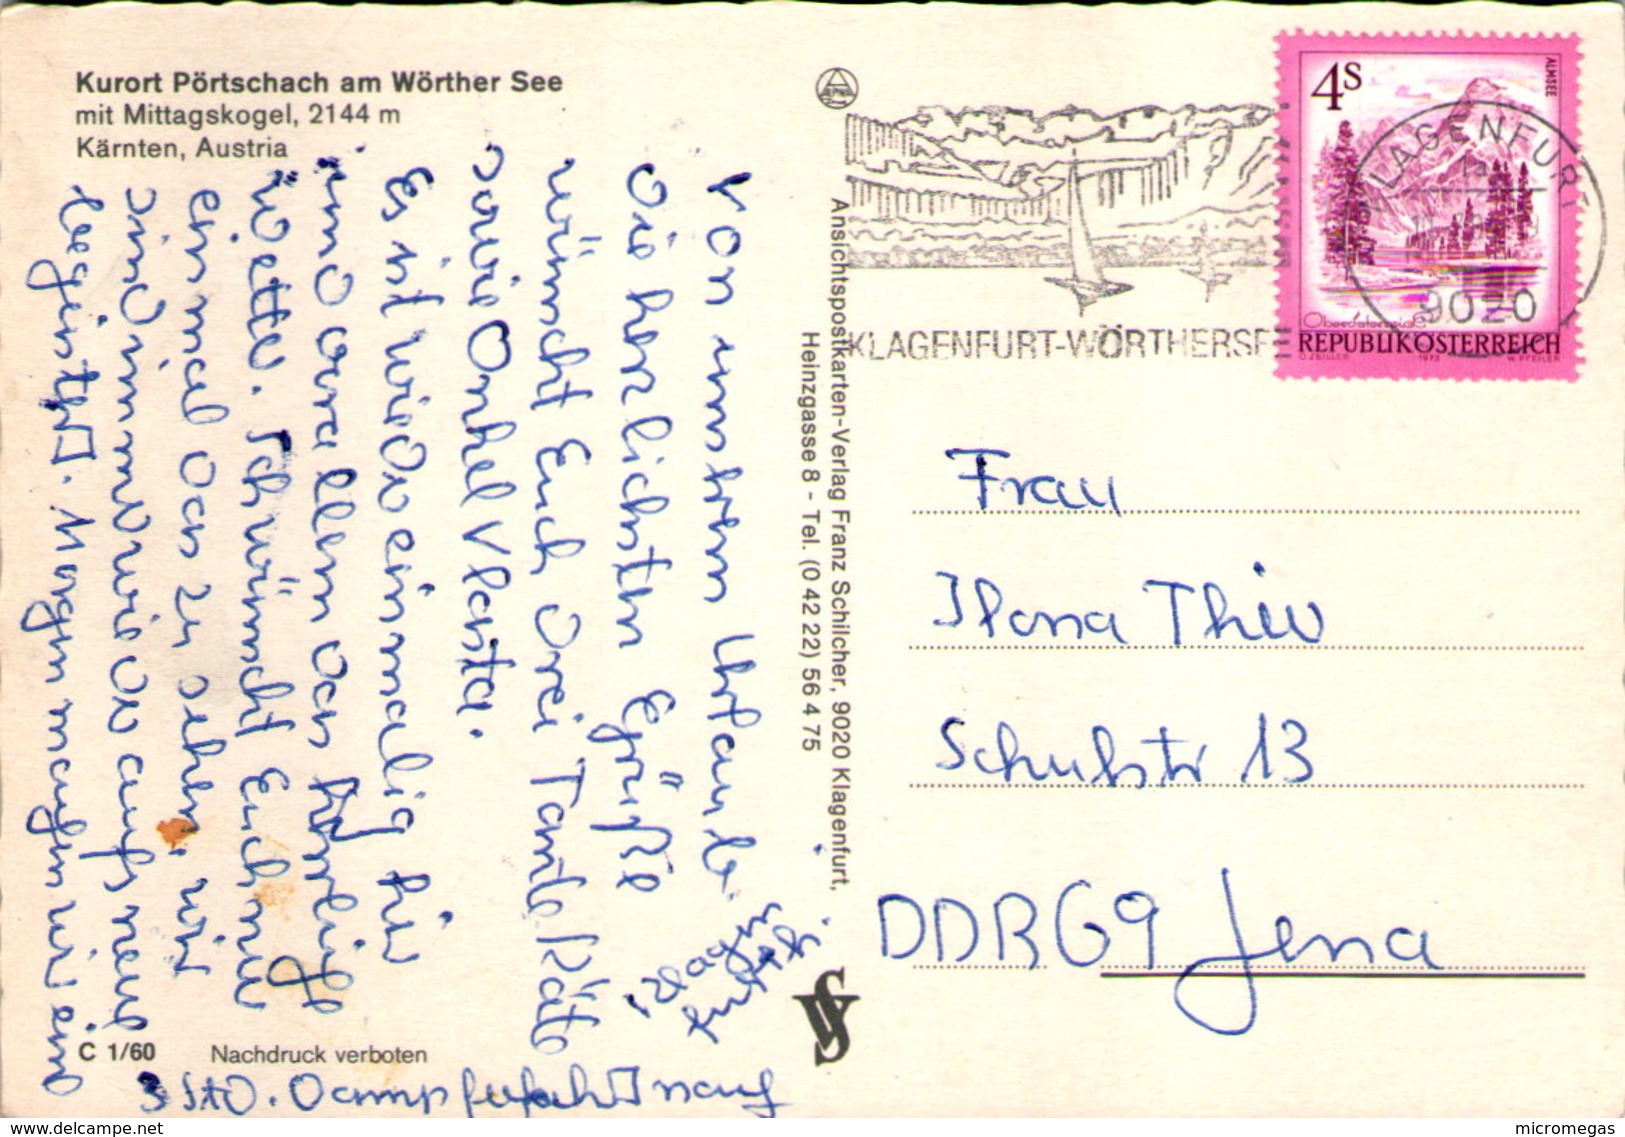 Kurort Pörtschach am Wörther See
mit Mittagskogel, 2144 m
Kärnten, Austria
Von unseren Urlaub
die herzlichsten Grüße
wünscht Euch drei Tante Kät
sowie Onkel Vlasta.
Es ist wieder einmalig hier
und vor allem das herrliche
Wetter. Ich wünscht Euch nur
einmal das zu sehen, wir
sind immer wieder aufs neue
begeistert. Morgen machen wir eine
3 Std. Dampferfahrt nach
Klagenfurt
C 1/60
Nachdruck verboten
Ansichtspostkarten-Verlag Franz Schilcher, 9020 Klagenfurt,
Heinzgasse 8 - Tel. (0 42 22) 56 4 75
KLAGENFURT-WÖRTHERSE
4S
ALMSEE
KLAGENFURT
9020
REPUBLIK ÖSTERREICH
O. ZEILLER 1973 W. PFEILER
Frau
Ilona Thier
Schulstr 13
DDR 69 Jena
www.delcampe.net
micromegas